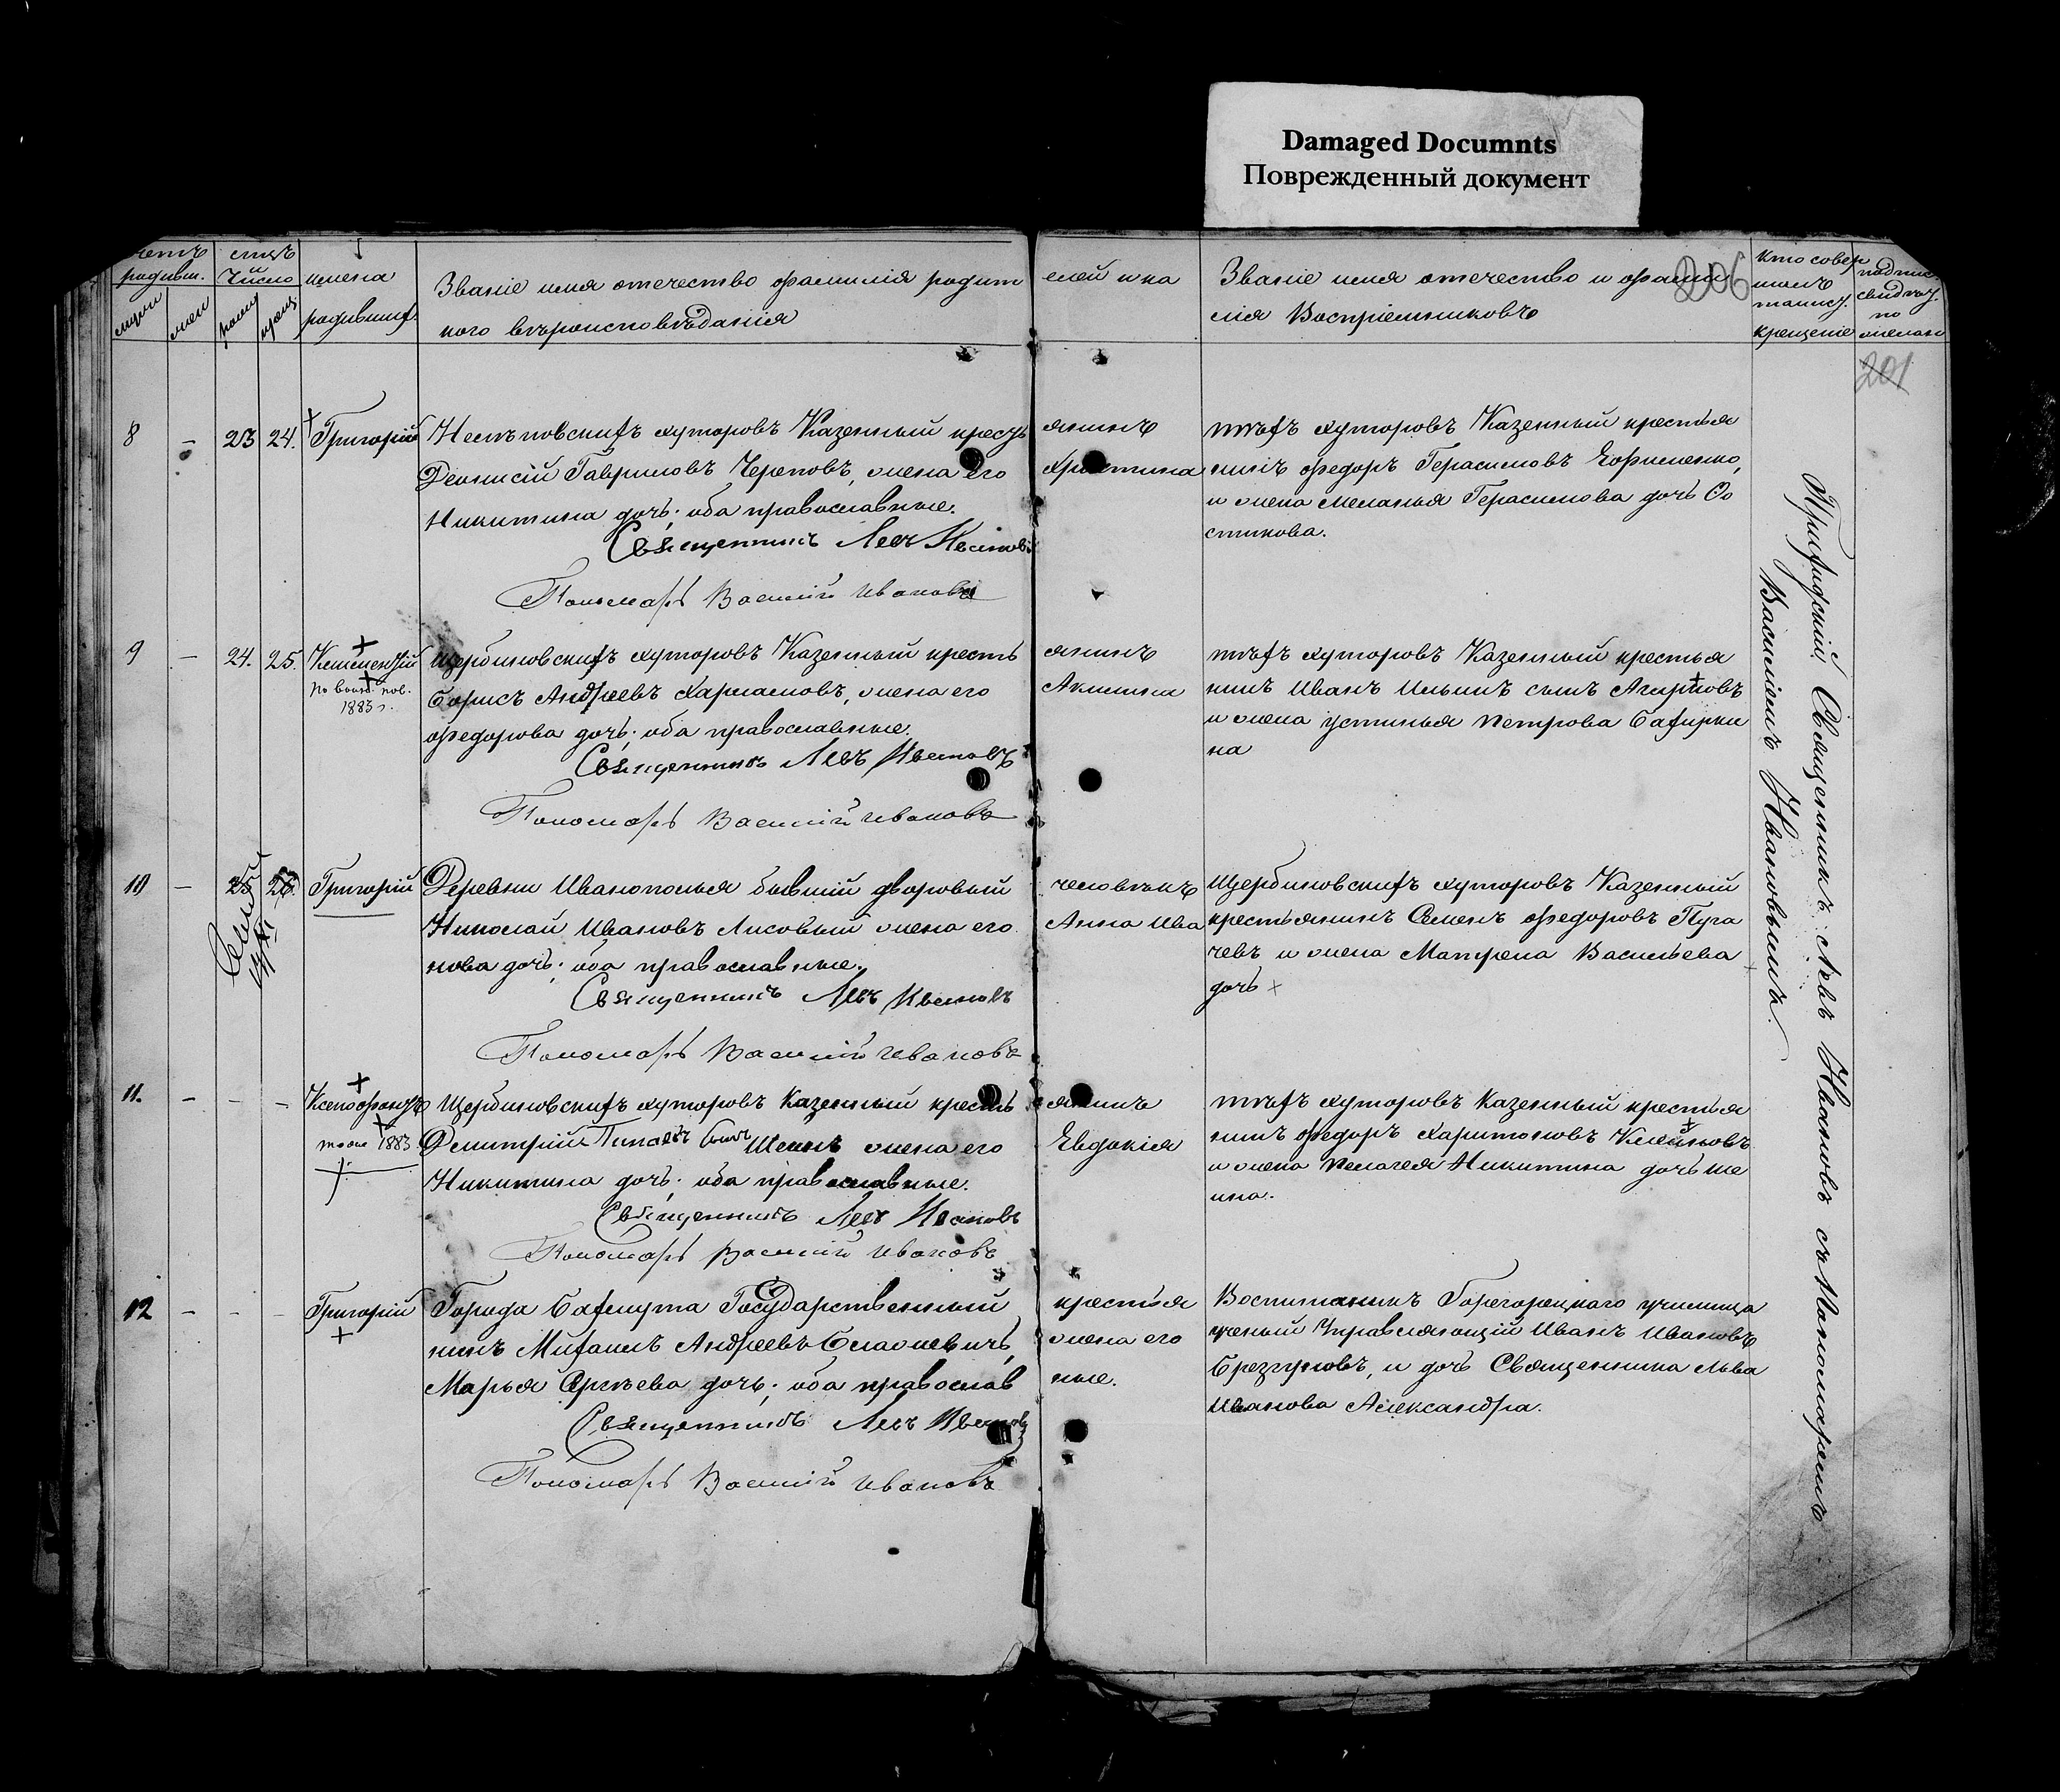 Damaged Documnts
Поврежденный документ
206
201
Званіе имя отечество фамилія родит елей и ка
кого вѣроисповѣданія
Званіе имя отечество и фами
лія Воспріемниковъ
имена
родивших.
родивш.
Число
кто совер
таинст.
крещеніе
8 – 23 24. Григорій
хуторовъ Казенный кресть янинъ
Деонисій Гавриловъ Череповъ, жена его Христина
Никитина дочь; оба православные.
Священникъ Левъ Ивановъ
Пономарь Василій Ивановъ
тѣхъ хуторовъ Казенный крестья
нинъ Федоръ Герасимовъ Ефименко,
и жена Меланья Герасимова дочь Со
стикова.
9 – 24. 25.
1883 г.
Щербиновскихъ хуторовъ Казенный кресть янинъ
Борисъ Андреевъ Харламовъ, жена его Акилина
Федорова дочь; оба православные.
Священникъ Левъ Ивановъ
Пономарь Василій Ивановъ
тѣхъ хуторовъ Казенный крестья
нинъ Иванъ Ильинъ сынъ
и жена Устинья Петрова
на
10 – 25 26. Григорій
Деревни Иванополья бывшій дворовый человѣкъ
Николай Ивановъ Лисовый жена его Анна Ива
нова дочь; оба православные.
Священникъ Левъ Ивановъ
Пономарь Василій Ивановъ
Щербиновскихъ хуторовъ Казенный
крестьянинъ Семенъ Федоровъ Пуга
чевъ и жена Матрена Васильева
дочь
11. – – – Ксенофонтъ
1883
Щербиновскихъ хуторовъ Казенный кресть янинъ
Димитрій жена его Евдокія
Никитина дочь; оба православные.
Священникъ Левъ Ивановъ
Пономарь Василій Ивановъ
тѣхъ хуторовъ Казенный крестья
нинъ Федоръ Харитоновъ
и жена Пелагея Никитина дочь Ше
ина.
12 – – – Григорій
Города Бахмута Государственный крестья
нинъ Михаилъ Андреевъ жена его
Марья Сергѣева дочь; оба православ ные.
Священникъ Левъ Ивановъ
Пономарь Василій Ивановъ
Воспитанникъ Горегорецкаго училища
ученый Управляющій Иванъ Ивановъ
Брезгуновъ, и дочь Священника Льва
Иванова Александра.
Священникъ Левъ Ивановъ съ Пономаремъ
Василіемъ Ивановымъ.